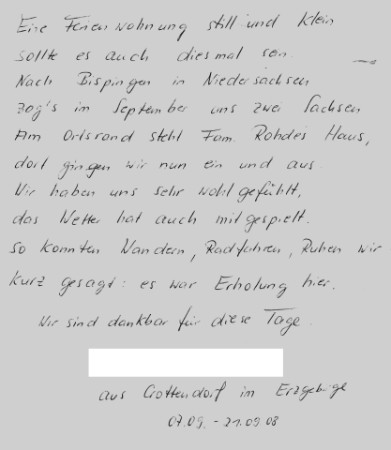 Eine Ferienwohnung still und klein
sollte es auch diesmal sein.
Nach Bispingen in Niedersachsen
zog's im September uns zwei Sachsen
Am Ortsrand steht Fam. Rohdes Haus,
dort gingen wir nun ein und aus.
Wir haben uns sehr wohl gefühlt,
das Wetter hat auch mitgespielt.
So konnten Wandern, Radfahren, Ruhen wir
kurz gesagt: es war Erholung hier.
Wir sind dankbar für diese Tage.
aus Crottendorf im Erzgebirge
07.09. - 21.09.08